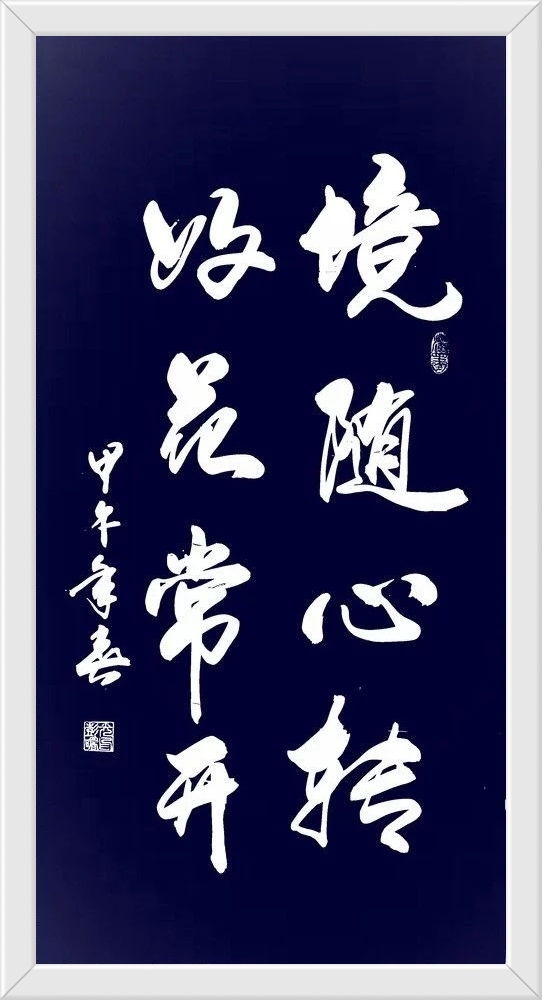 境随心转
好花常开
甲午年春